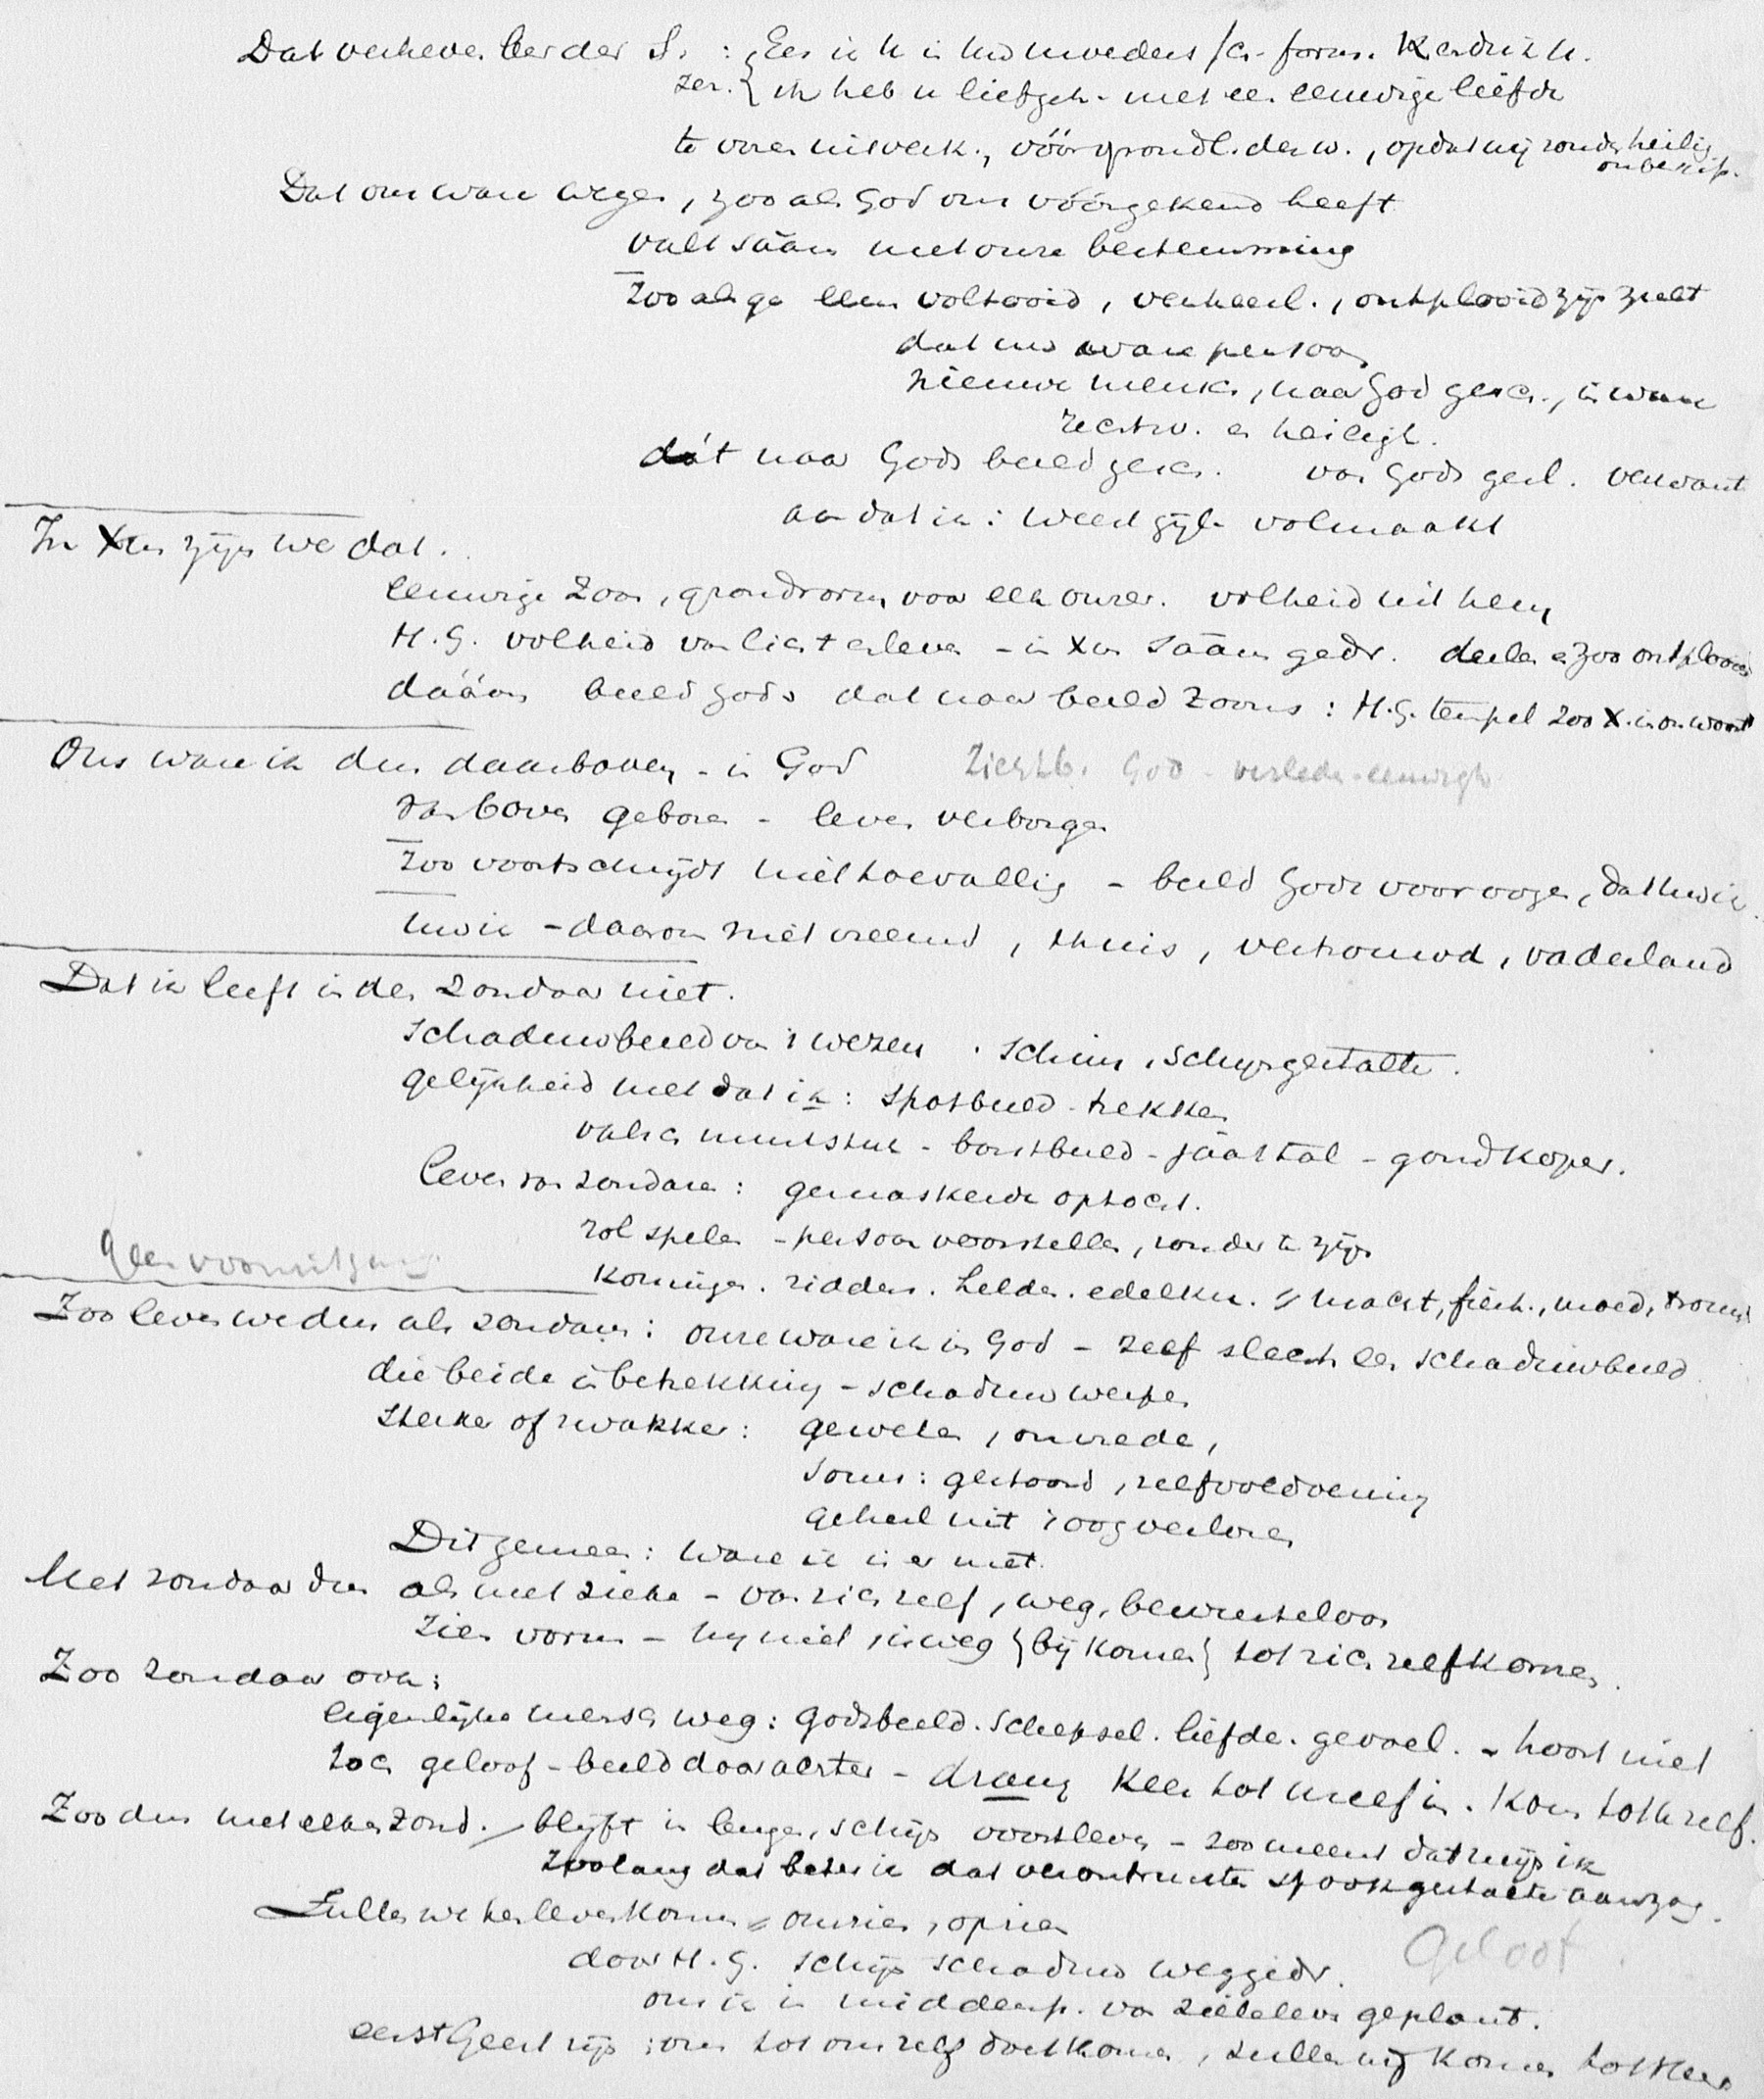 Dat verheven leer der S. : Eer ik u in uws moeders /ch. form. Kende ik u.
zer. { ik heb u liefgeh. met ee. eeuwige liefde
te voren uitverk., vóór grondl. der w., opdat wij zonder heilig onberisp.
Dat ons ware wezen, zooals God ons vóórgekend heeft
valt sáám met onze bestemming
zooals ge eens voltooid, verheerl., ontplooid zijn zult
dat uw ware persoon
nieuwe mensch, naar God gesch., in ware
rechtv. en heiligh.
dát naar Gods beeld gesch. van Gods gesl. verwant
aan dat ik: weest gijl. volmaakt
In Xus zijn we dat.
eeuwige Zoon, grondvorm voor elk onzer. volheid uit hem
H.G. volheid van licht en leven - in Xus sáám gedr. deelen en zoo ontplooien
dáárom beeld Gods dat naar beeld Zoons: H.G. tempel zoo X. in ons woont
Ons ware ik dus daarboven - in God Zichtb. God - verleden - eeuwigh.
van boven geboren - leven verborgen
zoo voortschrijdt niet toevallig - beeld Gods voor oogen, dat uw ik
uw ik - daarom niet vreemd, thuis, vertrouwd, vaderland
Dat ik leeft in den zondaar niet.
schaduwbeeld van 't wezen. schim, schijngestalte.
gelijkheid met dat ik: spotbeeld - trekken
valsch muntstuk - borstbeeld - jáártal - goud koper.
leven van zondaren: gemaskerde optocht.
rol spelen - persoon voorstellen, zonder te zijn
Geen vooruitgang
koningen. ridders. helden. edelkn. = macht, fierh., moed, trouw
Zoo leven we dus als zondaars: onze ware ik in God - zelf slechts een schaduwbeeld
die beide in betrekking - schaduw werpen
sterker of zwakker: geweten, onvrede,
soms: gestoord, zelfvoldoening
geheel uit 't oog verloren
Dit gemeen: ware ik is er niet.
Met zondaar dus als met zieke - van zich zelf, weg, bewusteloos
Zien vorm - hij niet, is weg {bij komen} tot zich zelf komen.
Zoo zondaar ook:
eigenlijke mensch weg: Godsbeeld. schepsel. liefde. gevoel. - hoort niet
toch geloof - beeld daarachter - drang Keer tot uzelf in. Kom tot u zelf.
Zoo dus met elken zond. - blijft in leugen, schijn voortleven - zoo meent dat mijn ik
zoolang dat betere ik dat verontruste spookgestalte aanzag.
Zullen we ten leven komen = omzien, opzien
Geloof
door H.G. schijn schaduw weggedr.
ons ik in middenp. van zieleleven geplant.
eerst Geest zijn: ons tot ons zelf doet komen, zullen wij komen tot Heer